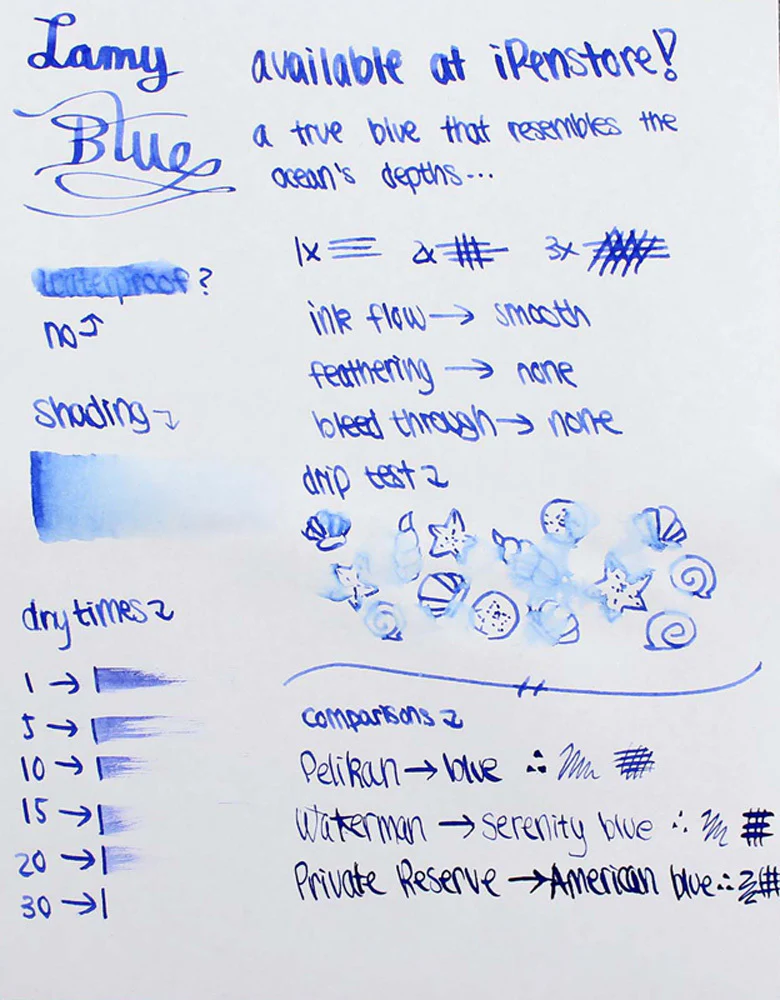 Lamy
Blue
available at iPenstore!
a true blue that resembles the
ocean's depths...
1x 2x 3x
waterproof?
no
ink flow → smooth
feathering → none
shading
bleed through → none
drip test
dry times
1 →
5 →
10 →
15 →
20 →
30 →
comparisons
Pelikan → blue
Waterman → Serenity blue
Private Reserve → American blue